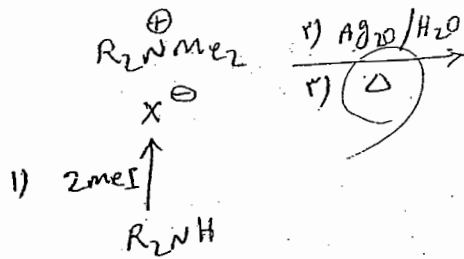 R₂N⊕Me₂
X⊖
۲) Ag₂O/H₂O
۳) Δ
1) 2meI
R₂NH